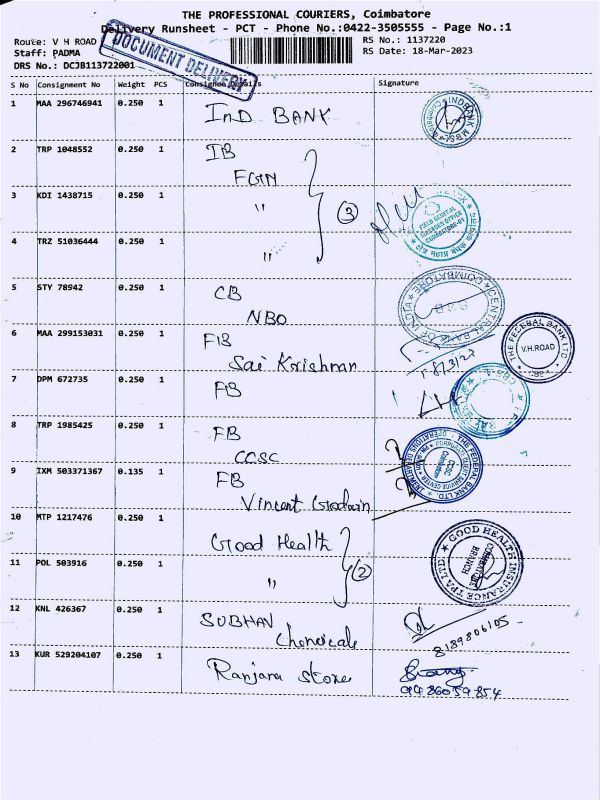 THE PROFESSIONAL COURIERS, Coimbatore
Delivery Runsheet - PCT - Phone No.:0422-3505555 - Page No.:1
Route: V H ROAD
RS No.: 1137220
Staff: PADMA
RS Date: 18-Mar-2023
DRS No.: DCJB113722001
DOCUMENT DELIVERY
S No Consignment No Weight PCS Consignee Details Signature
1 MAA 296746941 0.250 1 IND BANK
2 TRP 1048552 0.250 1 IB
FGIN
3 KDI 1438715 0.250 1 "
3
4 TRZ 51036444 0.250 1 "
FIELD GENERAL
COIMBATORE
5 STY 78942 0.250 1 CB
NBO
CENTRAL BANK OF INDIA
COIMBATORE
6 MAA 299153031 0.250 1 FIB
Sai Krishnan
THE FEDERAL BANK LTD.
V.H.ROAD
7 DPM 672735 0.250 1 FIB
8 TRP 1985425 0.250 1 FB
CCSC
THE FEDERAL BANK LTD.
CCSC
Coimbatore
9 IXM 503371367 0.135 1 FB
Vincent Godwin
10 MTP 1217476 0.250 1 Good Health
2
11 POL 503916 0.250 1 "
GOOD HEALTH INSURANCE TPA LTD.
COIMBATORE
BRANCH
12 KNL 426367 0.250 1 SUBHAN
Chemicals
8189806105
13 KUR 529204107 0.250 1 Ranjana Stores
9486059854